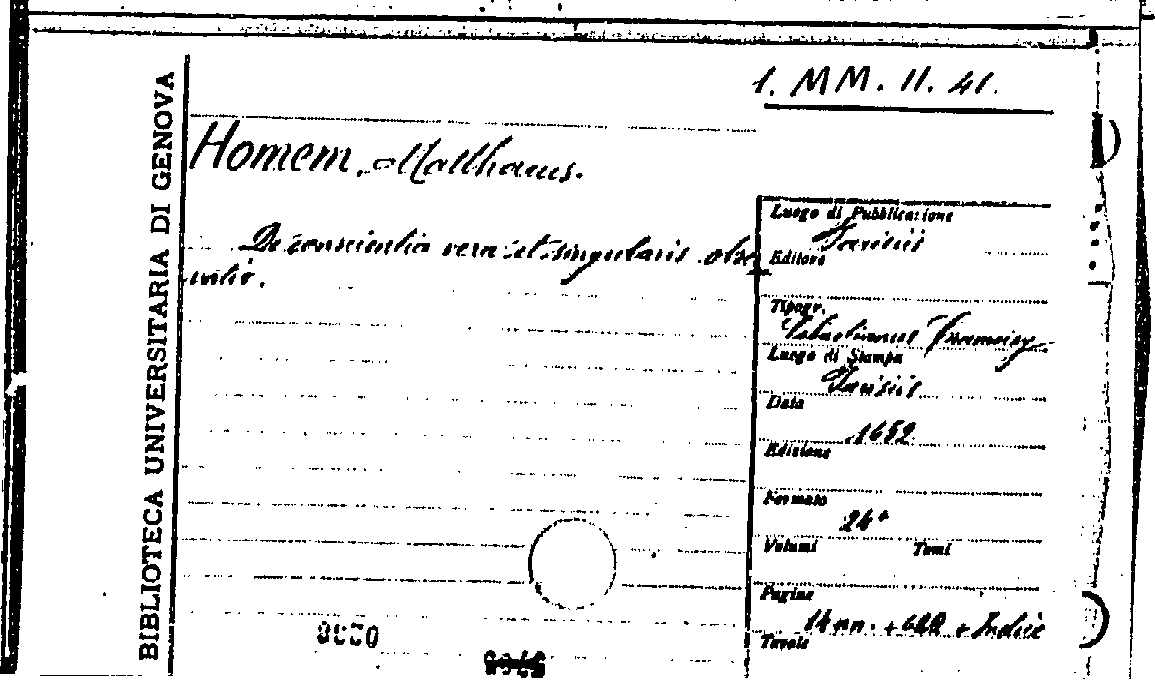 BIBLIOTECA UNIVERSITARIA DI GENOVA
1. MM. II. 41.
Homem, Matthaeus.
De conscientia vera et singularis obser
vatio.
Luogo di Pubblicazione
Parisiis
Editore
Tipogr.
Sebastianus Cramoisy
Luogo di Stampa
Parisiis
Data
1652
Edizione
Formato
24°
Volumi Tomi
Pagine
14 nn. + + Indice
Tavole